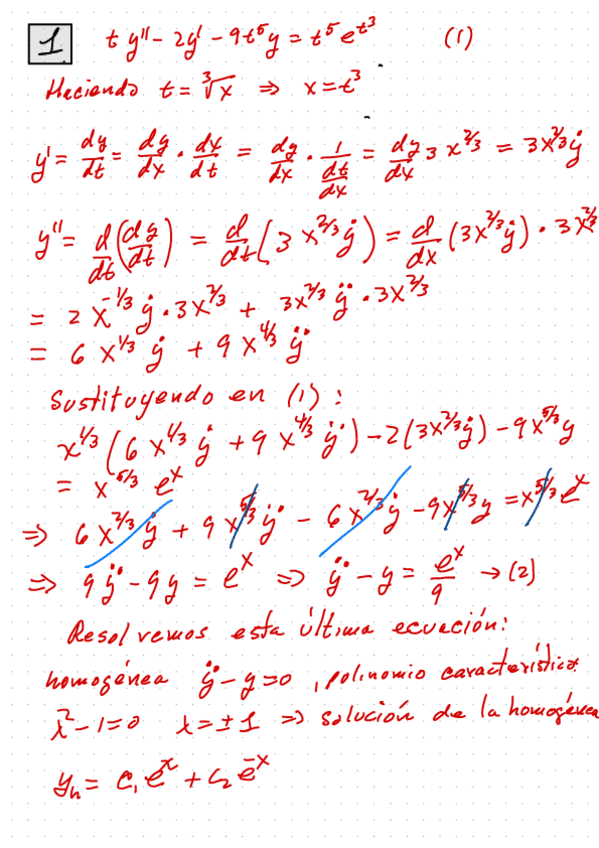 1 t y'' - 2y' - 9t⁵y = t⁵ e^{t³} (1)
Haciendo t = ∛x ⇒ x = t³
y' = dy/dt = dy/dx · dx/dt = dy/dx · 1/(dt/dx) = dy/dx 3 x^{2/3} = 3x^{2/3}ẏ
y'' = d/dt (dy/dt) = d/dt (3 x^{2/3} ẏ) = d/dx (3x^{2/3} ẏ) · 3 x^{2/3}
= 2 x^{-1/3} ẏ · 3x^{2/3} + 3x^{2/3} ÿ · 3x^{2/3}
= 6 x^{1/3} ẏ + 9 x^{4/3} ÿ
Sustituyendo en (1):
x^{1/3} (6 x^{1/3} ẏ + 9 x^{4/3} ÿ) - 2(3x^{2/3}ẏ) - 9x^{5/3}y
= x^{5/3} e^x
⇒ 6 x^{2/3} ẏ + 9 x^{5/3} ÿ - 6 x^{2/3} ẏ - 9x^{5/3} y = x^{5/3} e^x
⇒ 9ÿ - 9y = e^x ⇒ ÿ - y = e^x/9 → (2)
Resolvemos esta última ecuación:
homogénea ÿ - y = 0, polinomio característico:
λ² - 1 = 0 λ = ± 1 ⇒ solución de la homogénea
y_h = C₁ e^x + C₂ e^{-x}